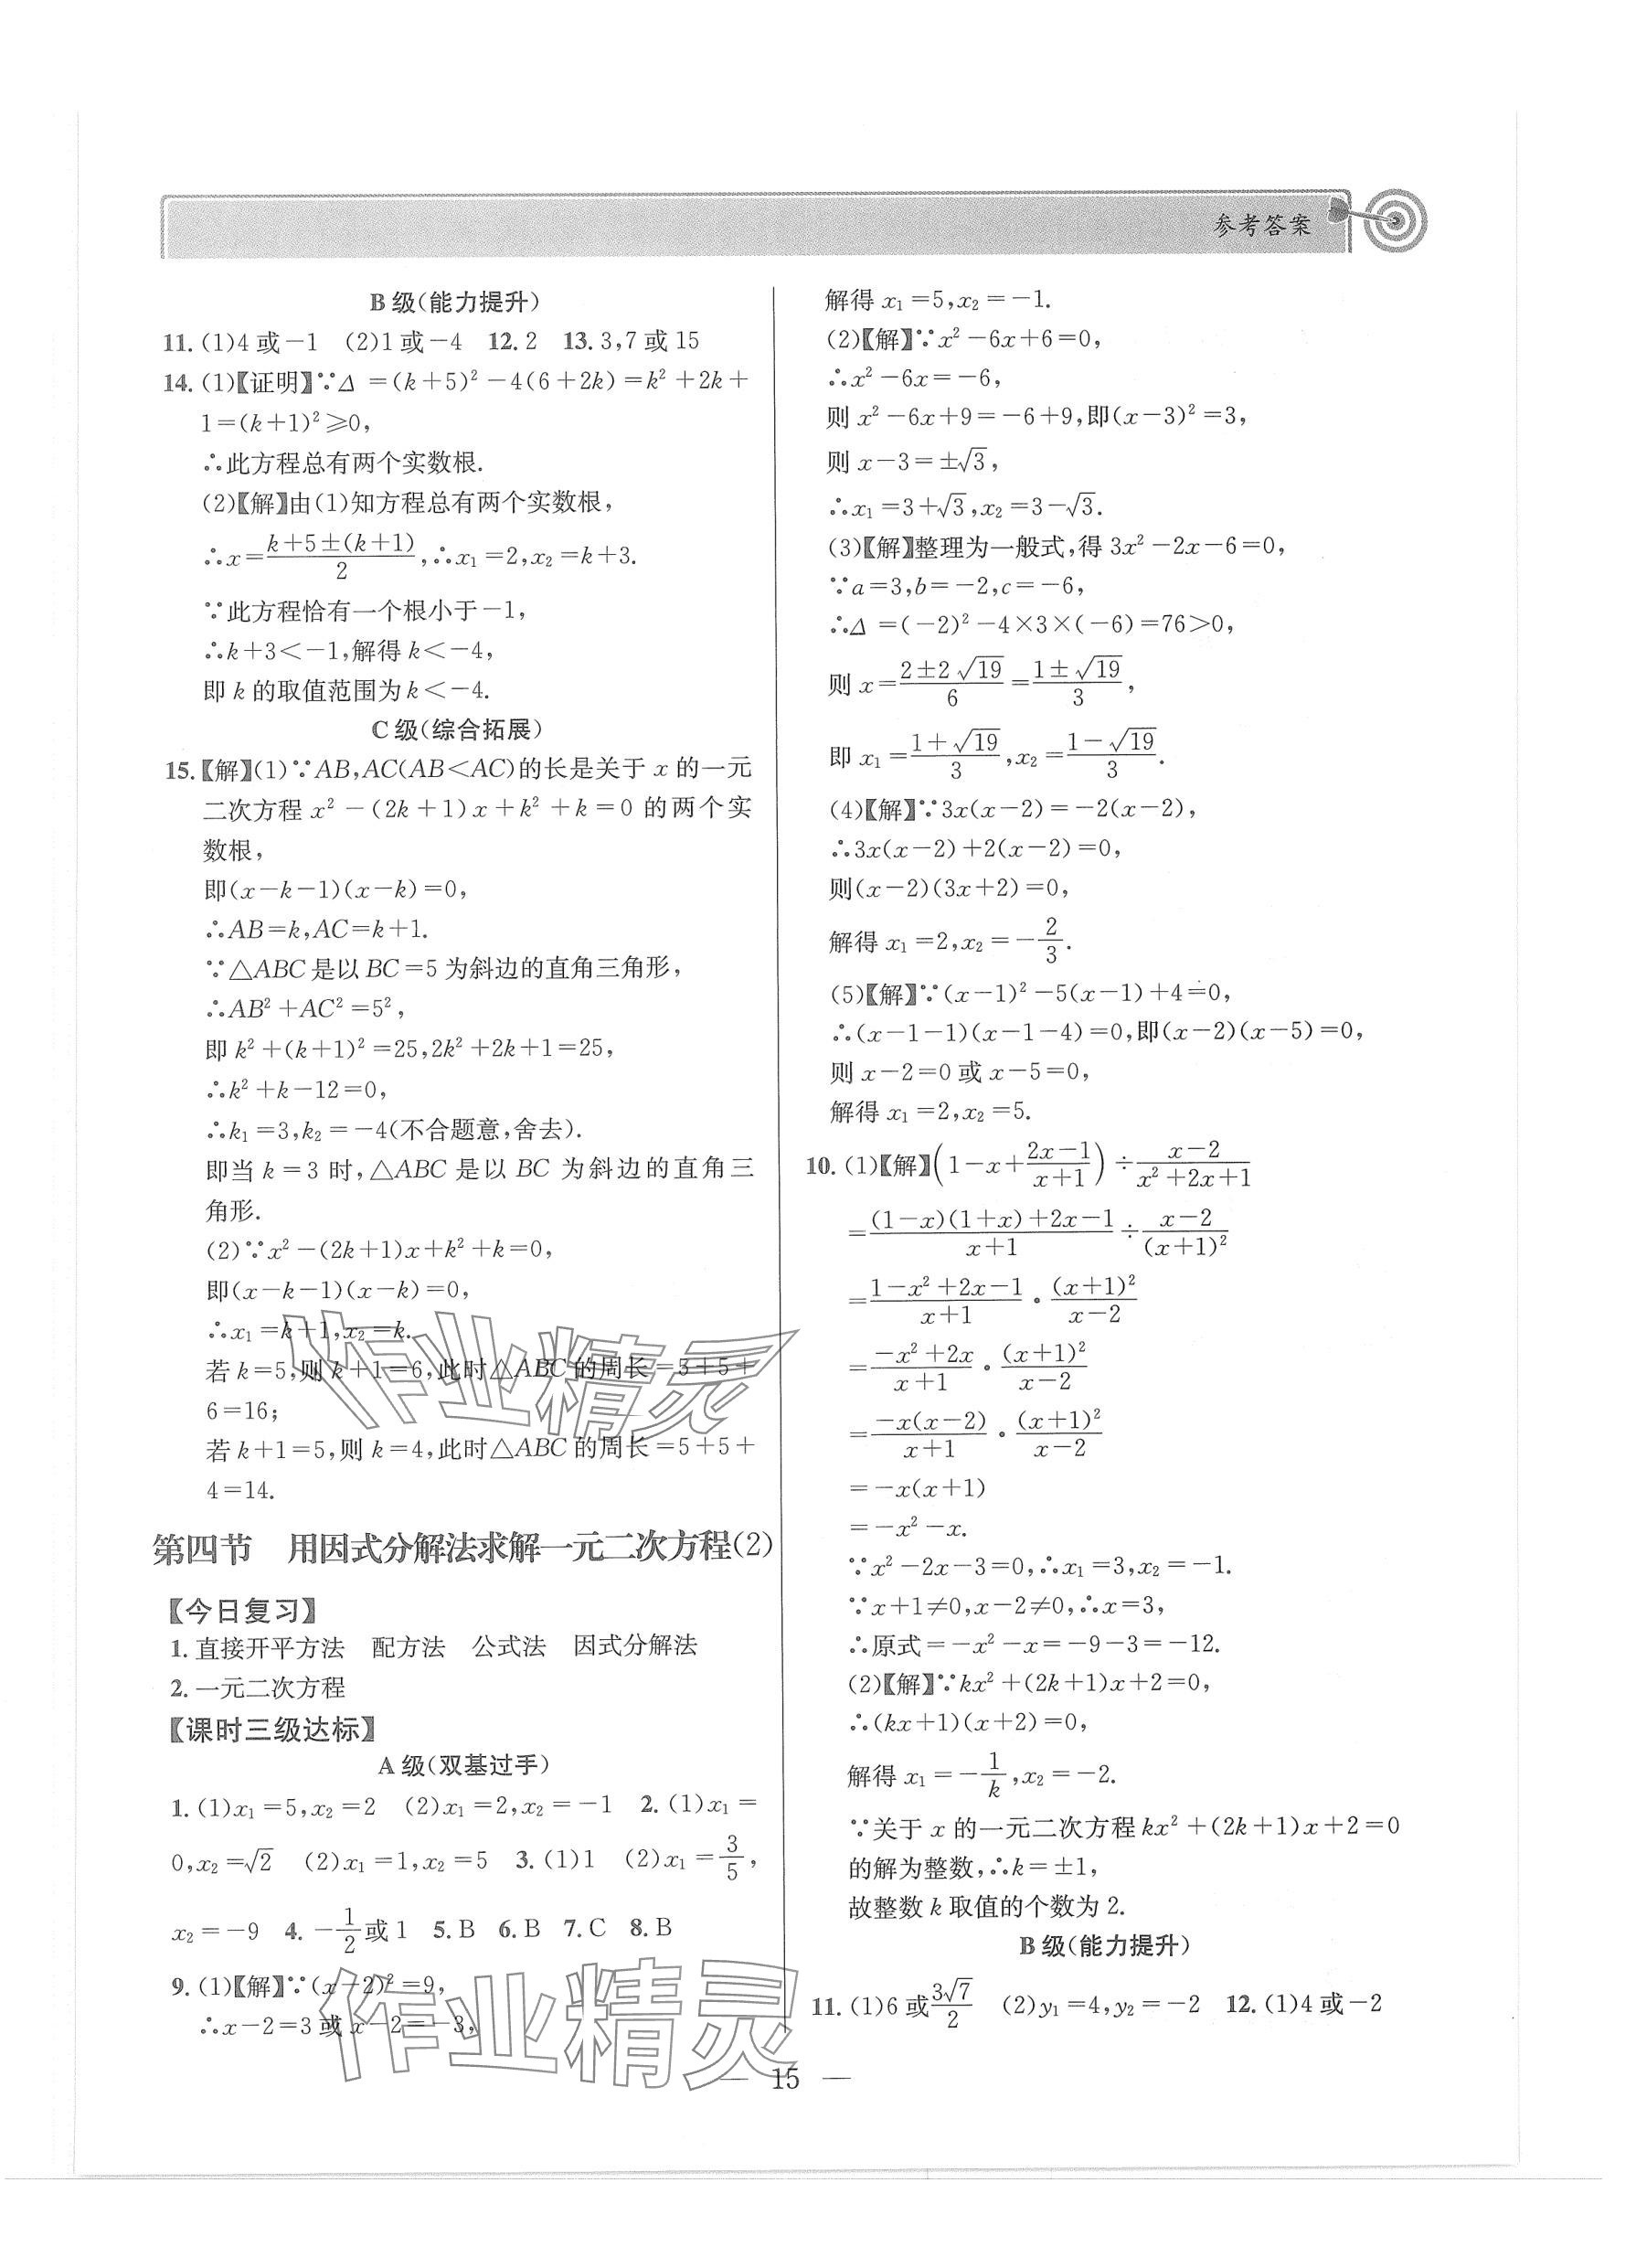 参考答案
B级(能力提升)
11.(1)4或-1 (2)1或-4 12.2 13.3,7或15
14.(1)【证明】∵Δ=(k+5)²-4(6+2k)=k²+2k+
1=(k+1)²≥0,
∴此方程总有两个实数根.
(2)【解】由(1)知方程总有两个实数根,
∴x=\frac{k+5±(k+1)}{2},∴x₁=2,x₂=k+3.
∵此方程恰有一个根小于-1,
∴k+3<-1,解得k<-4,
即k的取值范围为k<-4.
C级(综合拓展)
15.【解】(1)∵AB,AC(AB<AC)的长是关于x的一元
二次方程x²-(2k+1)x+k²+k=0的两个实
数根,
即(x-k-1)(x-k)=0,
∴AB=k,AC=k+1.
∵△ABC是以BC=5为斜边的直角三角形,
∴AB²+AC²=5²,
即k²+(k+1)²=25,2k²+2k+1=25,
∴k²+k-12=0,
∴k₁=3,k₂=-4(不合题意,舍去).
即当k=3时,△ABC是以BC为斜边的直角三
角形.
(2)∵x²-(2k+1)x+k²+k=0,
即(x-k-1)(x-k)=0,
∴x₁=k+1,x₂=k.
若k=5,则k+1=6,此时△ABC的周长=5+5+
6=16;
若k+1=5,则k=4,此时△ABC的周长=5+5+
4=14.
第四节 用因式分解法求解一元二次方程(2)
【今日复习】
1.直接开平方法 配方法 公式法 因式分解法
2.一元二次方程
【课时三级达标】
A级(双基过手)
1.(1)x₁=5,x₂=2 (2)x₁=2,x₂=-1 2.(1)x₁=
0,x₂=√2 (2)x₁=1,x₂=5 3.(1)1 (2)x₁=\frac{3}{5},
x₂=-9 4.-\frac{1}{2}或1 5.B 6.B 7.C 8.B
9.(1)【解】∵(x-2)²=9,
∴x-2=3或x-2=-3,
解得x₁=5,x₂=-1.
(2)【解】∵x²-6x+6=0,
∴x²-6x=-6,
则x²-6x+9=-6+9,即(x-3)²=3,
则x-3=±√3,
∴x₁=3+√3,x₂=3-√3.
(3)【解】整理为一般式,得3x²-2x-6=0,
∵a=3,b=-2,c=-6,
∴Δ=(-2)²-4×3×(-6)=76>0,
则x=\frac{2±2√19}{6}=\frac{1±√19}{3},
即x₁=\frac{1+√19}{3},x₂=\frac{1-√19}{3}.
(4)【解】∵3x(x-2)=-2(x-2),
∴3x(x-2)+2(x-2)=0,
则(x-2)(3x+2)=0,
解得x₁=2,x₂=-\frac{2}{3}.
(5)【解】∵(x-1)²-5(x-1)+4=0,
∴(x-1-1)(x-1-4)=0,即(x-2)(x-5)=0,
则x-2=0或x-5=0,
解得x₁=2,x₂=5.
10.(1)【解】(1-x+\frac{2x-1}{x+1})÷\frac{x-2}{x²+2x+1}
=\frac{(1-x)(1+x)+2x-1}{x+1}÷\frac{x-2}{(x+1)²}
=\frac{1-x²+2x-1}{x+1}·\frac{(x+1)²}{x-2}
=\frac{-x²+2x}{x+1}·\frac{(x+1)²}{x-2}
=\frac{-x(x-2)}{x+1}·\frac{(x+1)²}{x-2}
=-x(x+1)
=-x²-x.
∵x²-2x-3=0,∴x₁=3,x₂=-1.
∵x+1≠0,x-2≠0,∴x=3,
∴原式=-x²-x=-9-3=-12.
(2)【解】∵kx²+(2k+1)x+2=0,
∴(kx+1)(x+2)=0,
解得x₁=-\frac{1}{k},x₂=-2.
∵关于x的一元二次方程kx²+(2k+1)x+2=0
的解为整数,∴k=±1,
故整数k取值的个数为2.
B级(能力提升)
11.(1)6或\frac{3√7}{2} (2)y₁=4,y₂=-2 12.(1)4或-2
— 15 —
作业精灵
作业精灵